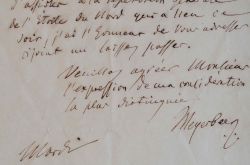 d'assister à la répétition générale
de l'Etoile du Nord qui a lieu ce
soir, j'ai l'honneur de vous adresser
ci-joint un laissez passer.
Veuillez agréer Monsieur
l'expression de ma considération
la plus distinguée
Meyerbeer
Mardi